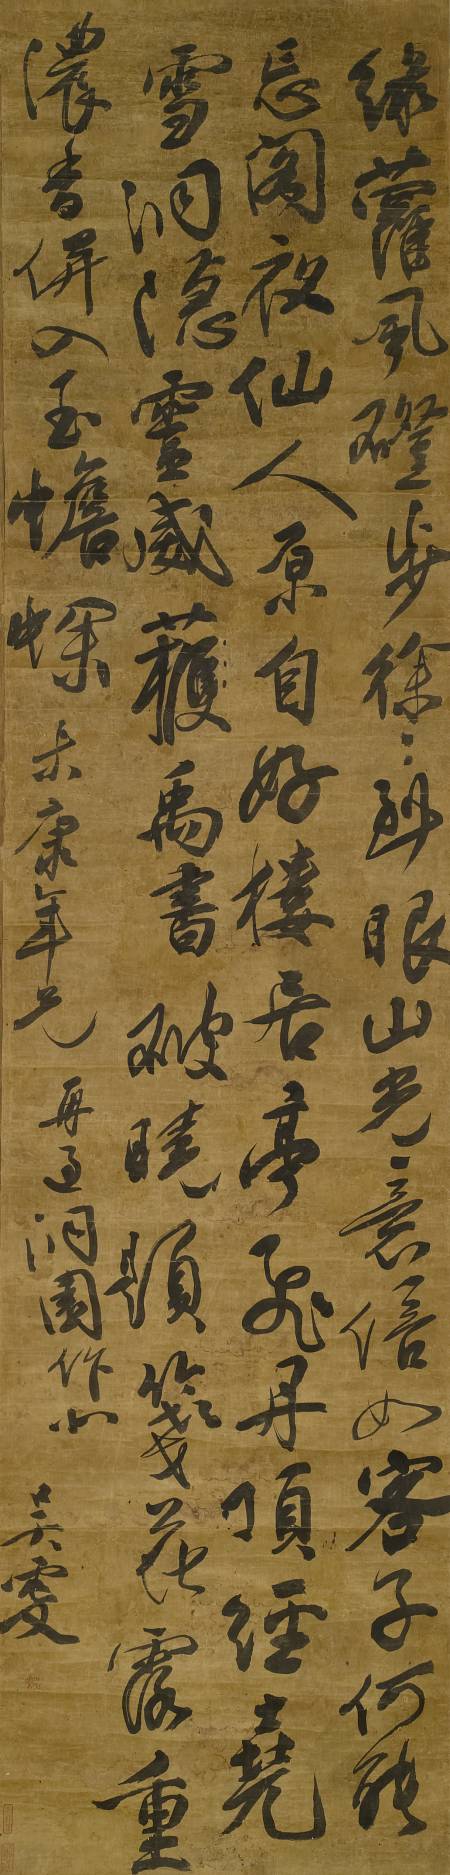 綠蘿風磴步徐〻到眼山光意倍如客子何能
忘閣夜仙人原自好樓居亭飛丹頂經堯
雪洞隱靈威獲禹書破曉題箋花露重
濃香併入玉蟾蜍 康年兄 再過洞園作 吳雯